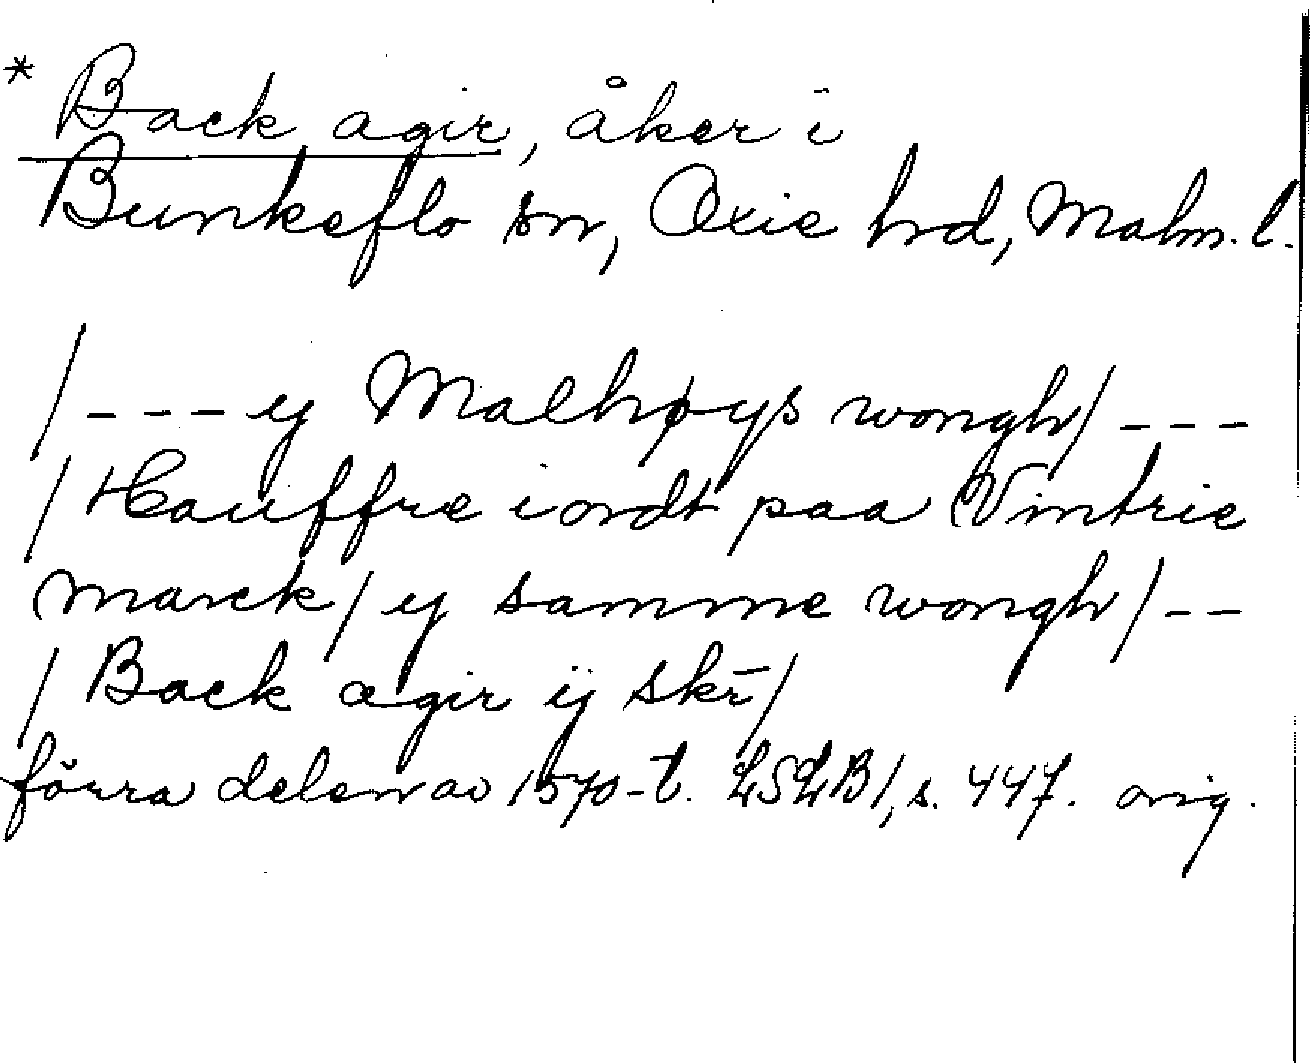 * Back agir, åker i
Bunkeflo sn, Oxie hrd, Malm. l.
/--- ij Malhøys wongh/ ---
/ Hauffre iordt paa Vintrie
marck/ ij samme wongh/ --
/ Back agir ij skr̄/
förra delen av 1570-t. LSLB1, s. 447. orig.